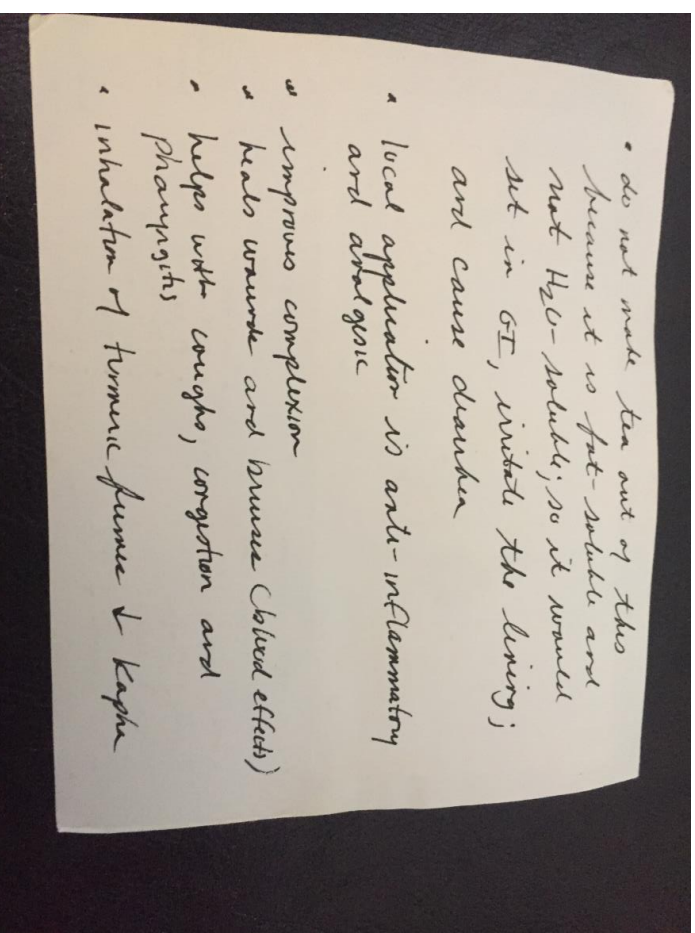 • do not make tea out of this
because it is fat-soluble and
not H2O-soluble; so it would
sit in GI, irritate the lining;
and cause diarrhea
• local application is anti-inflammatory
and analgesic
• improves complexion
• heals wounds and bruises (blood effects)
• helps with coughs, congestion and
pharyngitis
• inhalation of turmeric fumes ↓ Kapha